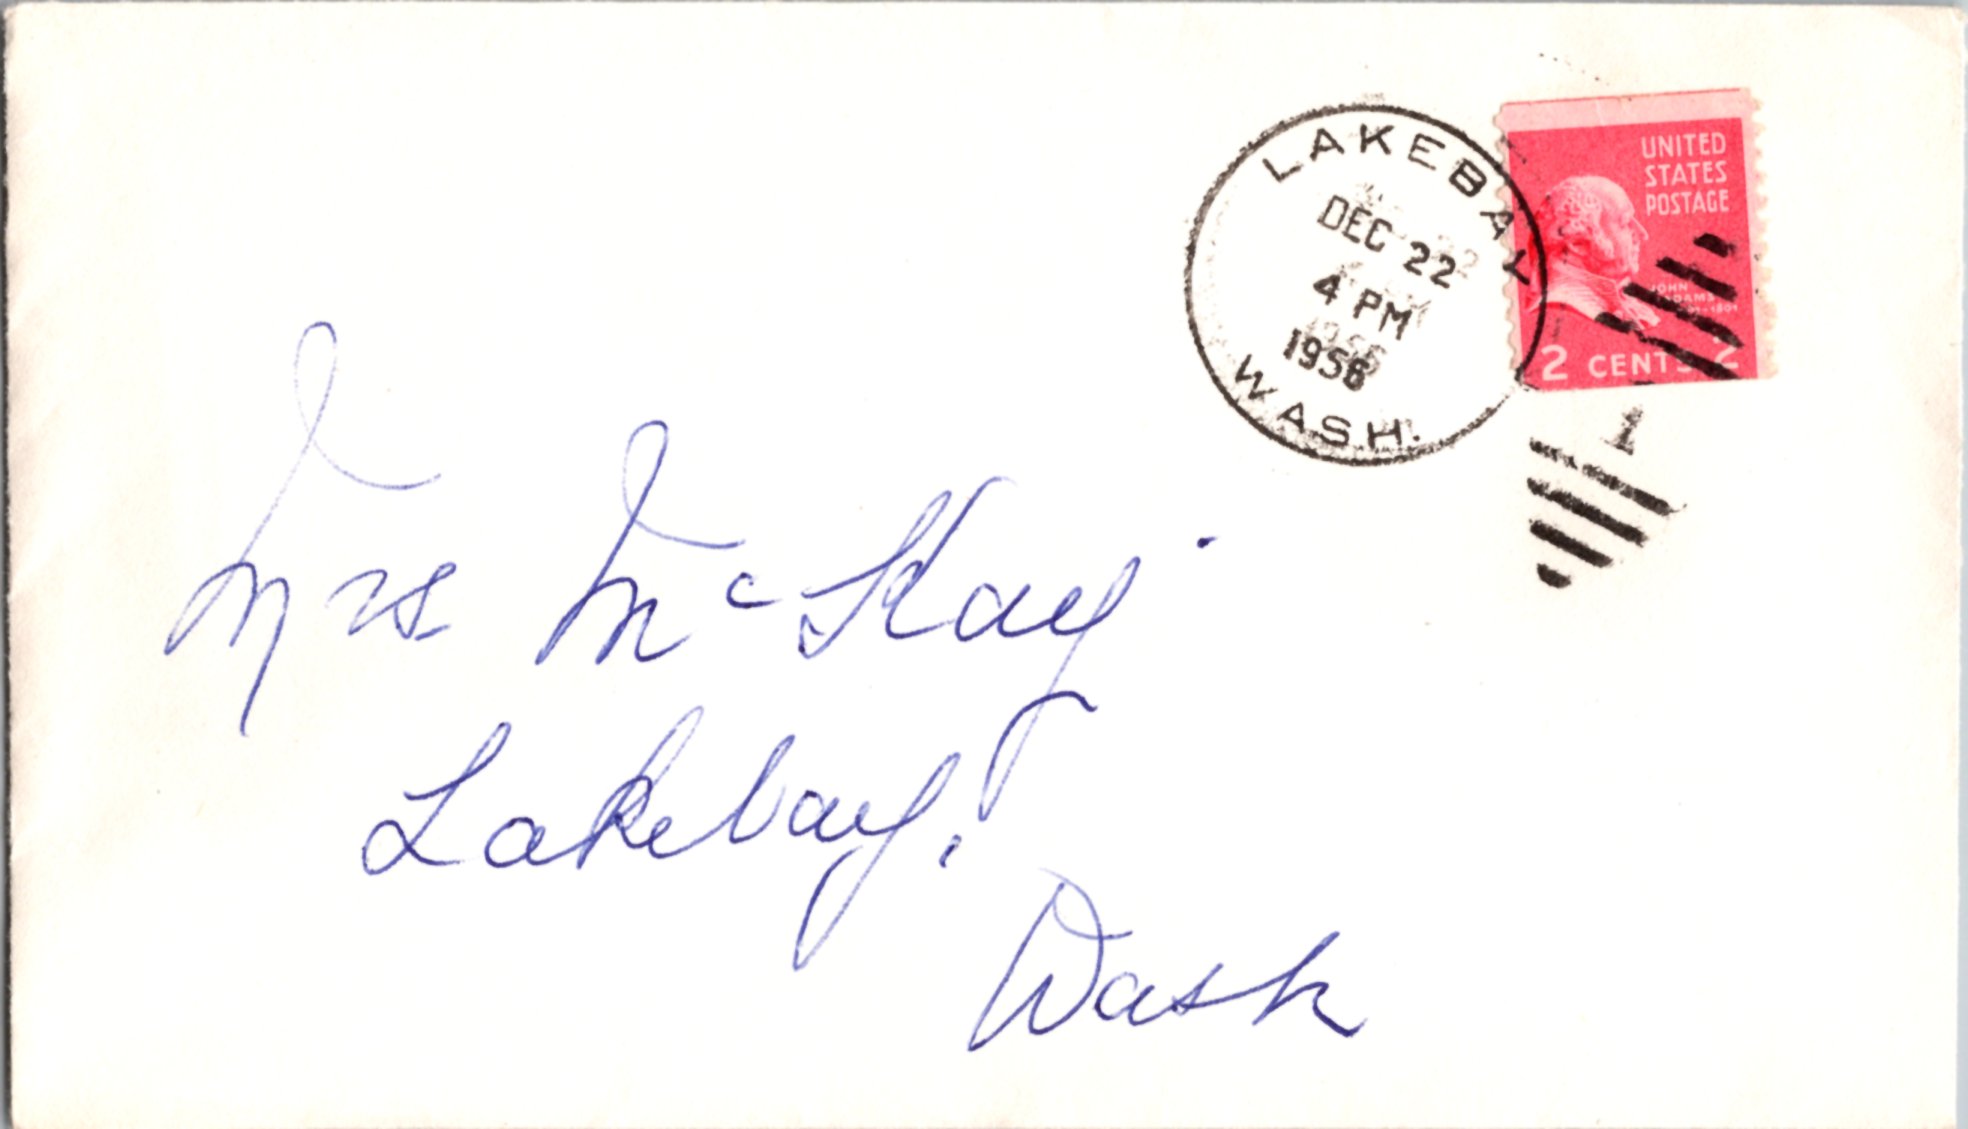 LAKEBAY
DEC 22
4 PM
1956
WASH.
UNITED
STATES
POSTAGE
JOHN
ADAMS
2 CENTS 2
1
Mrs McKay
Lakebay,
Wash